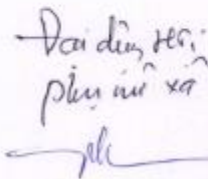 Đại diện Hội
phụ nữ xã